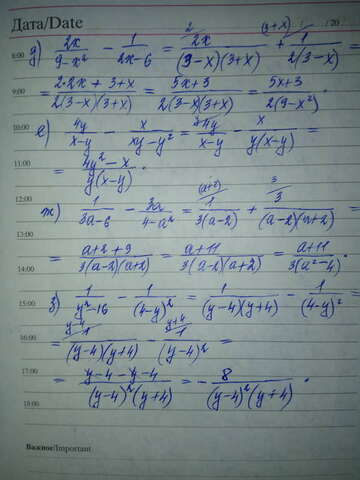 Дата/Date /20
8:00 д) 2x/(9-x²) - 1/(2x-6) = 2x/((3-x)(3+x)) + 1/(2(3-x)) =
9:00 = (2·2x+3+x)/(2(3-x)(3+x)) = (5x+3)/(2(3-x)(3+x)) = (5x+3)/(2(9-x²)).
10:00 е) 4y/(x-y) - x/(xy-y²) = 4y/(x-y) - x/(y(x-y)) =
11:00 = (4y²-x)/(y(x-y)).
12:00 ж) 1/(3a-6) - 3a/(4-a²) = 1/(3(a-2)) + 3/((a-2)(a+2)) =
13:00
14:00 = (a+2+9)/(3(a-2)(a+2)) = (a+11)/(3(a-2)(a+2)) = (a+11)/(3(a²-4)).
15:00 з) 1/(y²-16) - 1/(4-y)² = 1/((y-4)(y+4)) - 1/(4-y)² =
16:00 = 1/((y-4)(y+4)) - 1/(y-4)² =
17:00 = (y-4-y-4)/((y-4)²(y+4)) = - 8/((y-4)²(y+4)).
18:00
Важное/Important